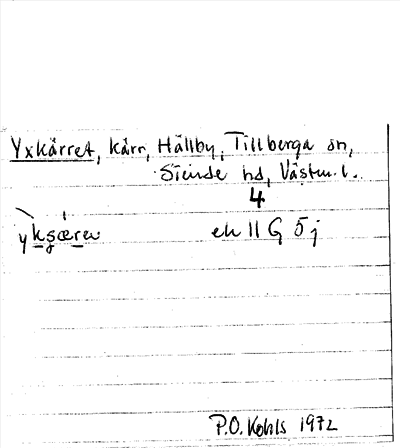 Yxkärret, kärr, Hällby, Tillberga sn,
Siende hd, Västm. l.
4
ek 11 G 5 j
P.O. Kohls 1972